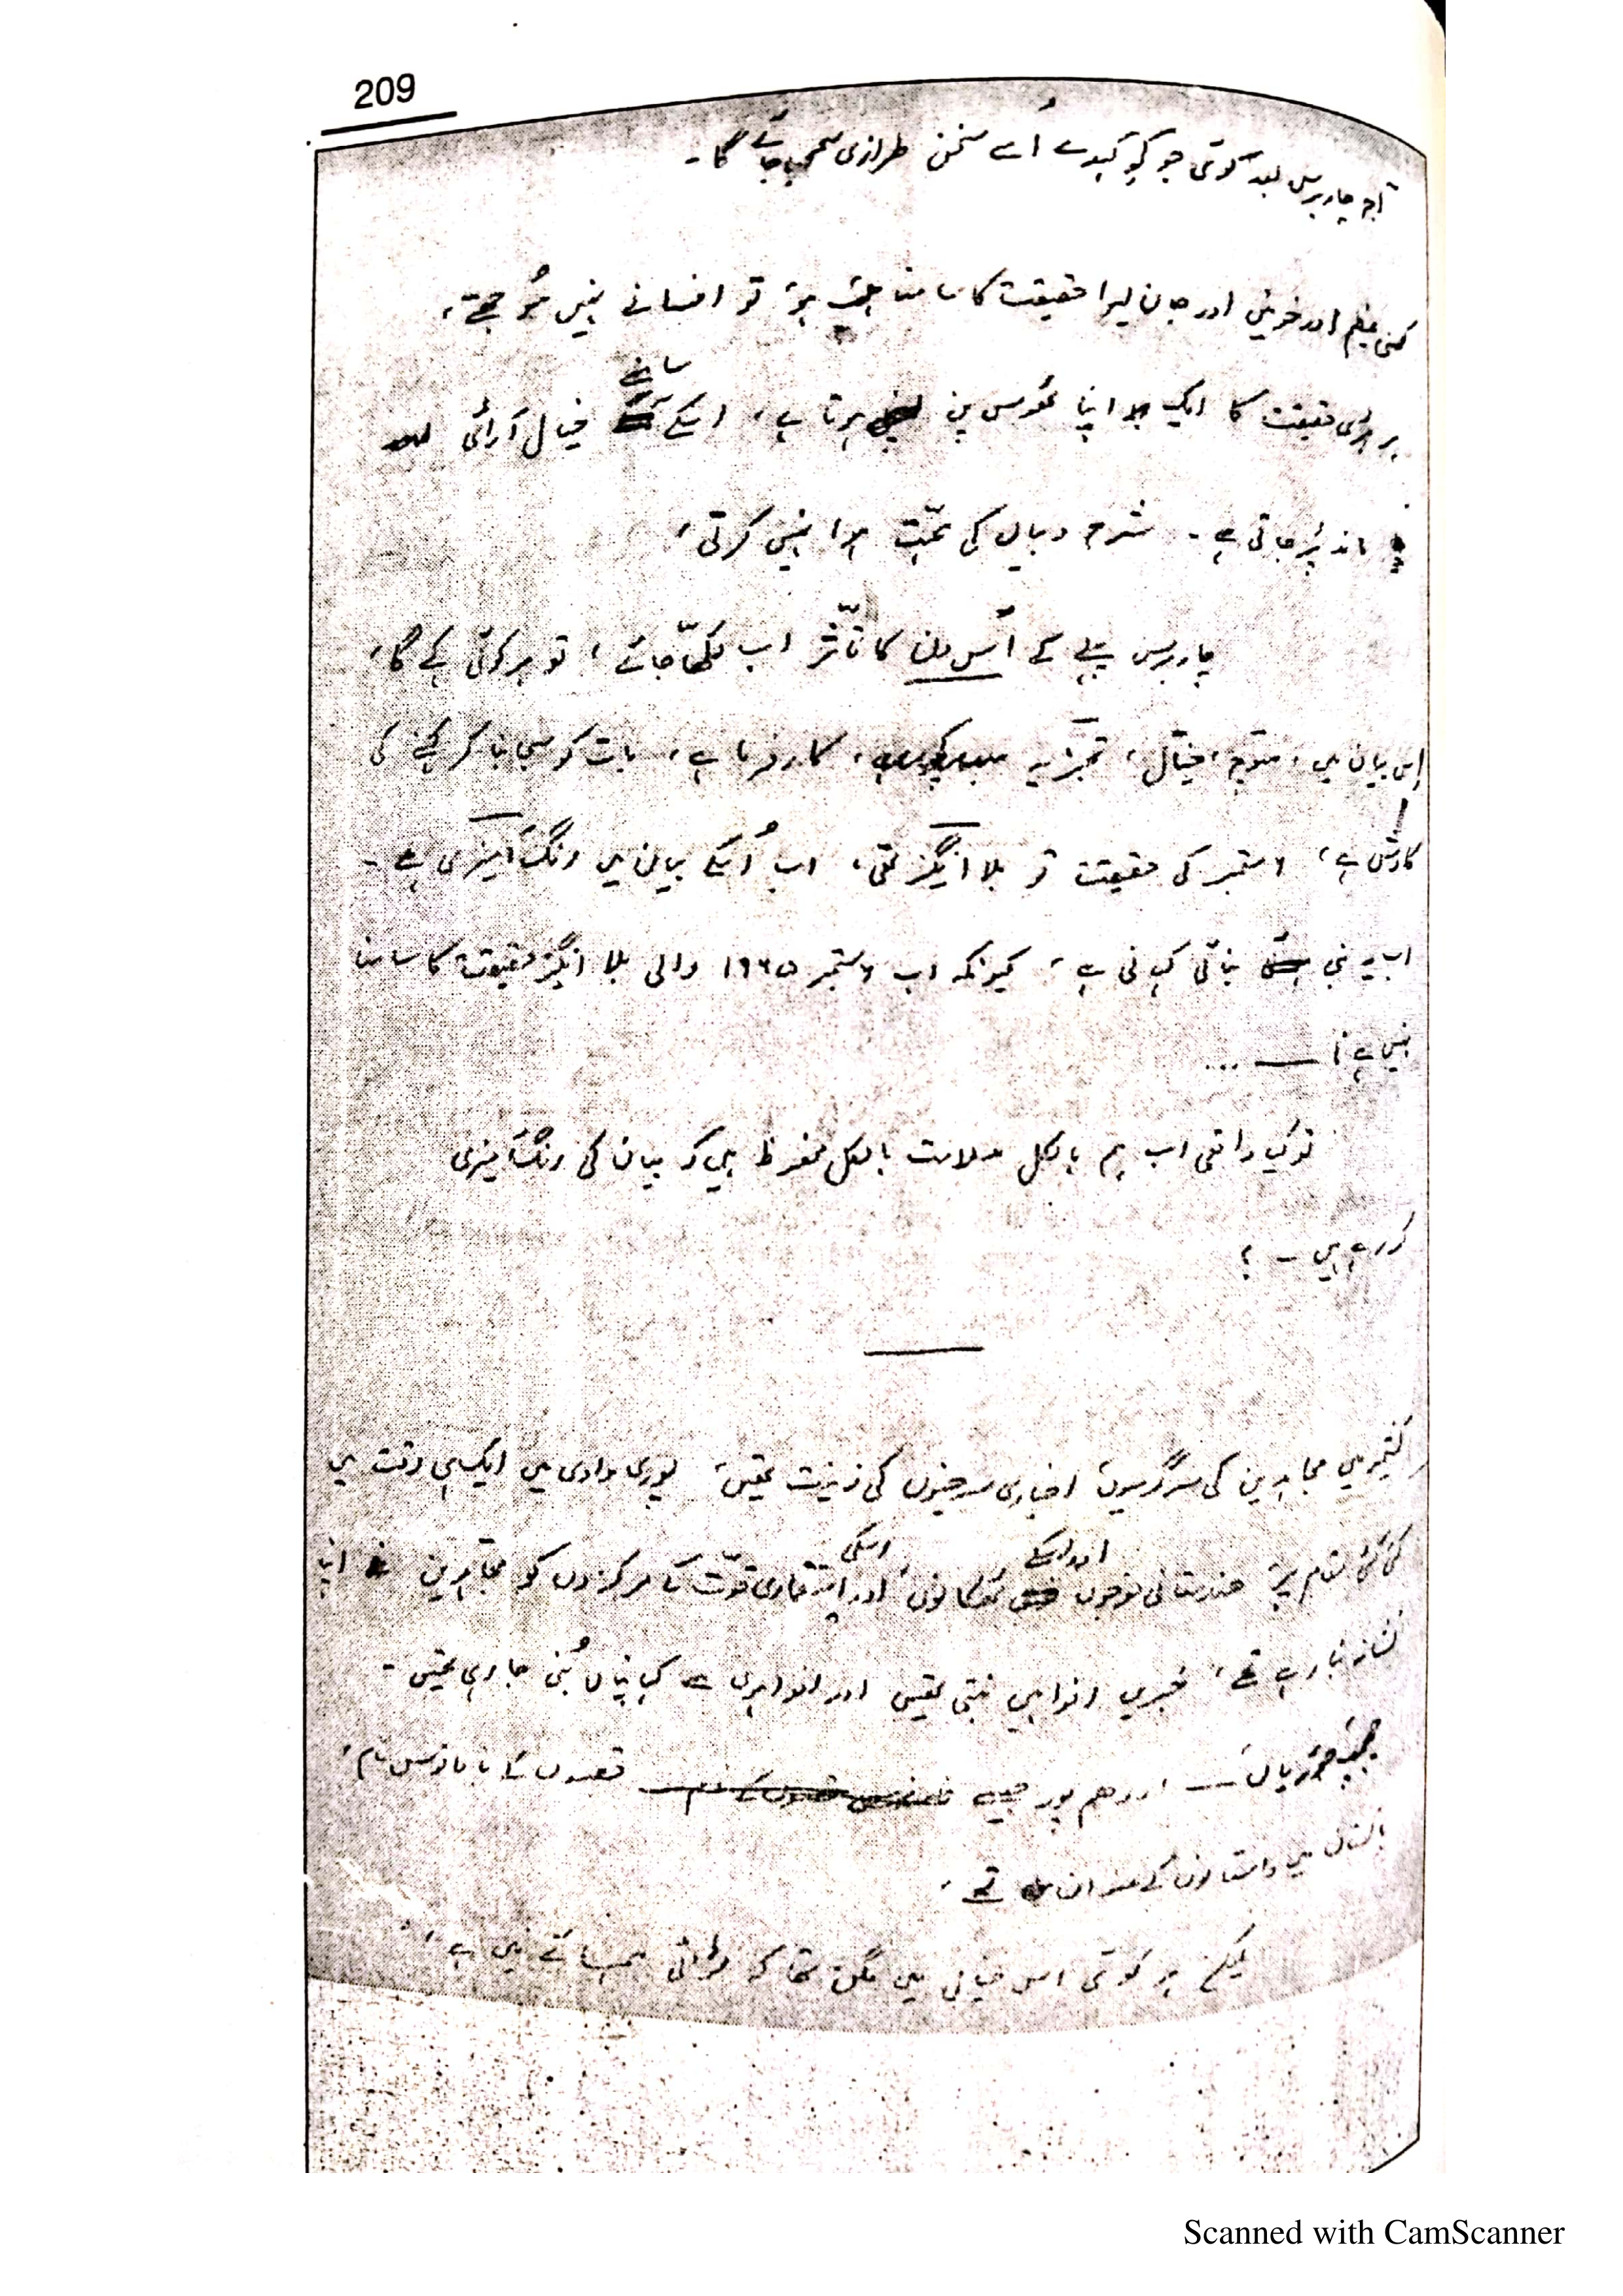 209
آج چار برس بعد کوئی جو کچھ کہدے اُسے سخن طرازی سمجھا جائے گا۔
کسی عظیم اور خونیں اور جان لیوا حقیقت کا سامنا جب ہو تو افسانے نہیں سُوجھتے،
ہر بڑی حقیقت کا ایک اپنا ٹھوس پن ہوتا ہے، اسکے سامنے خیال آرائی
ماند پڑ جاتی ہے۔ شرح و بیاں کی ہمّت نہیں کرتی،
چار برس پہلے کے اُس دن کا تأثر اب لکھا جائے، تو ہر کوئی کہے گا،
اِس بیان میں، خیال، تجزیہ کار فرما ہے، بات کو سجا بنا کر کہنے کی
کاوش ہے، ۶ ستمبر کی حقیقت تو بلا انگیز تھی، اب اُسکے بیان میں رنگ آمیزی ہے۔
اب یہ بنی بنائی کہانی ہے، کیونکہ اب ۶ ستمبر ۱۹۶۵ والی بلا انگیز حقیقت کا سامنا
نہیں ہے نا ــــ ...
تو کیا واقعی اب ہم بالکل سلامت بالکل محفوظ ہیں کہ بیان کی رنگ آمیزی
کر رہے ہیں ۔ ؟
کشمیر میں مجاہدین کی سرگرمیاں اخباری سرخیوں کی زینت تھیں، پوری وادی میں ایک ہی وقت میں
کئی کئی مقام پر ہندوستانی فوجوں اور اسکے ٹھکانوں، اور اسکی اقتصادی قوّت کے مرکزوں کو مجاہدین اپنا
نشانہ بنا رہے تھے، خبریں افواہیں بنتی تھیں اور افواہوں سے کہانیاں بُنی جا رہی تھیں۔
چھمب جوڑیاں ــــ اودھم پور جیسے قصبوں کے نامانوس نام،
پاکستان میں داستانوں کے عنوان تھے،
لیکن ہر کوئی اس خیال میں مگن تھا کہ لڑائی ہمسائے میں ہے،
Scanned with CamScanner